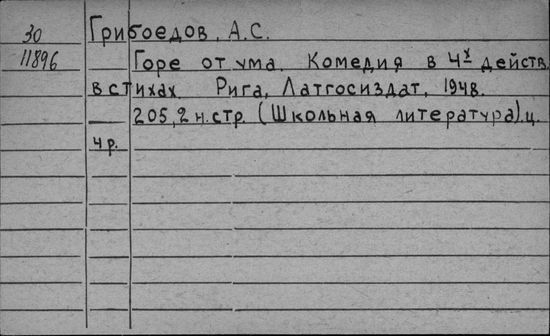 30 Грибоедов, А.С.
11896 Горе от ума. Комедия в 4х действ.
в стихах Рига, Латгосиздат, 1948.
205,2 н.стр. (Школьная литература). ц.
4 р.